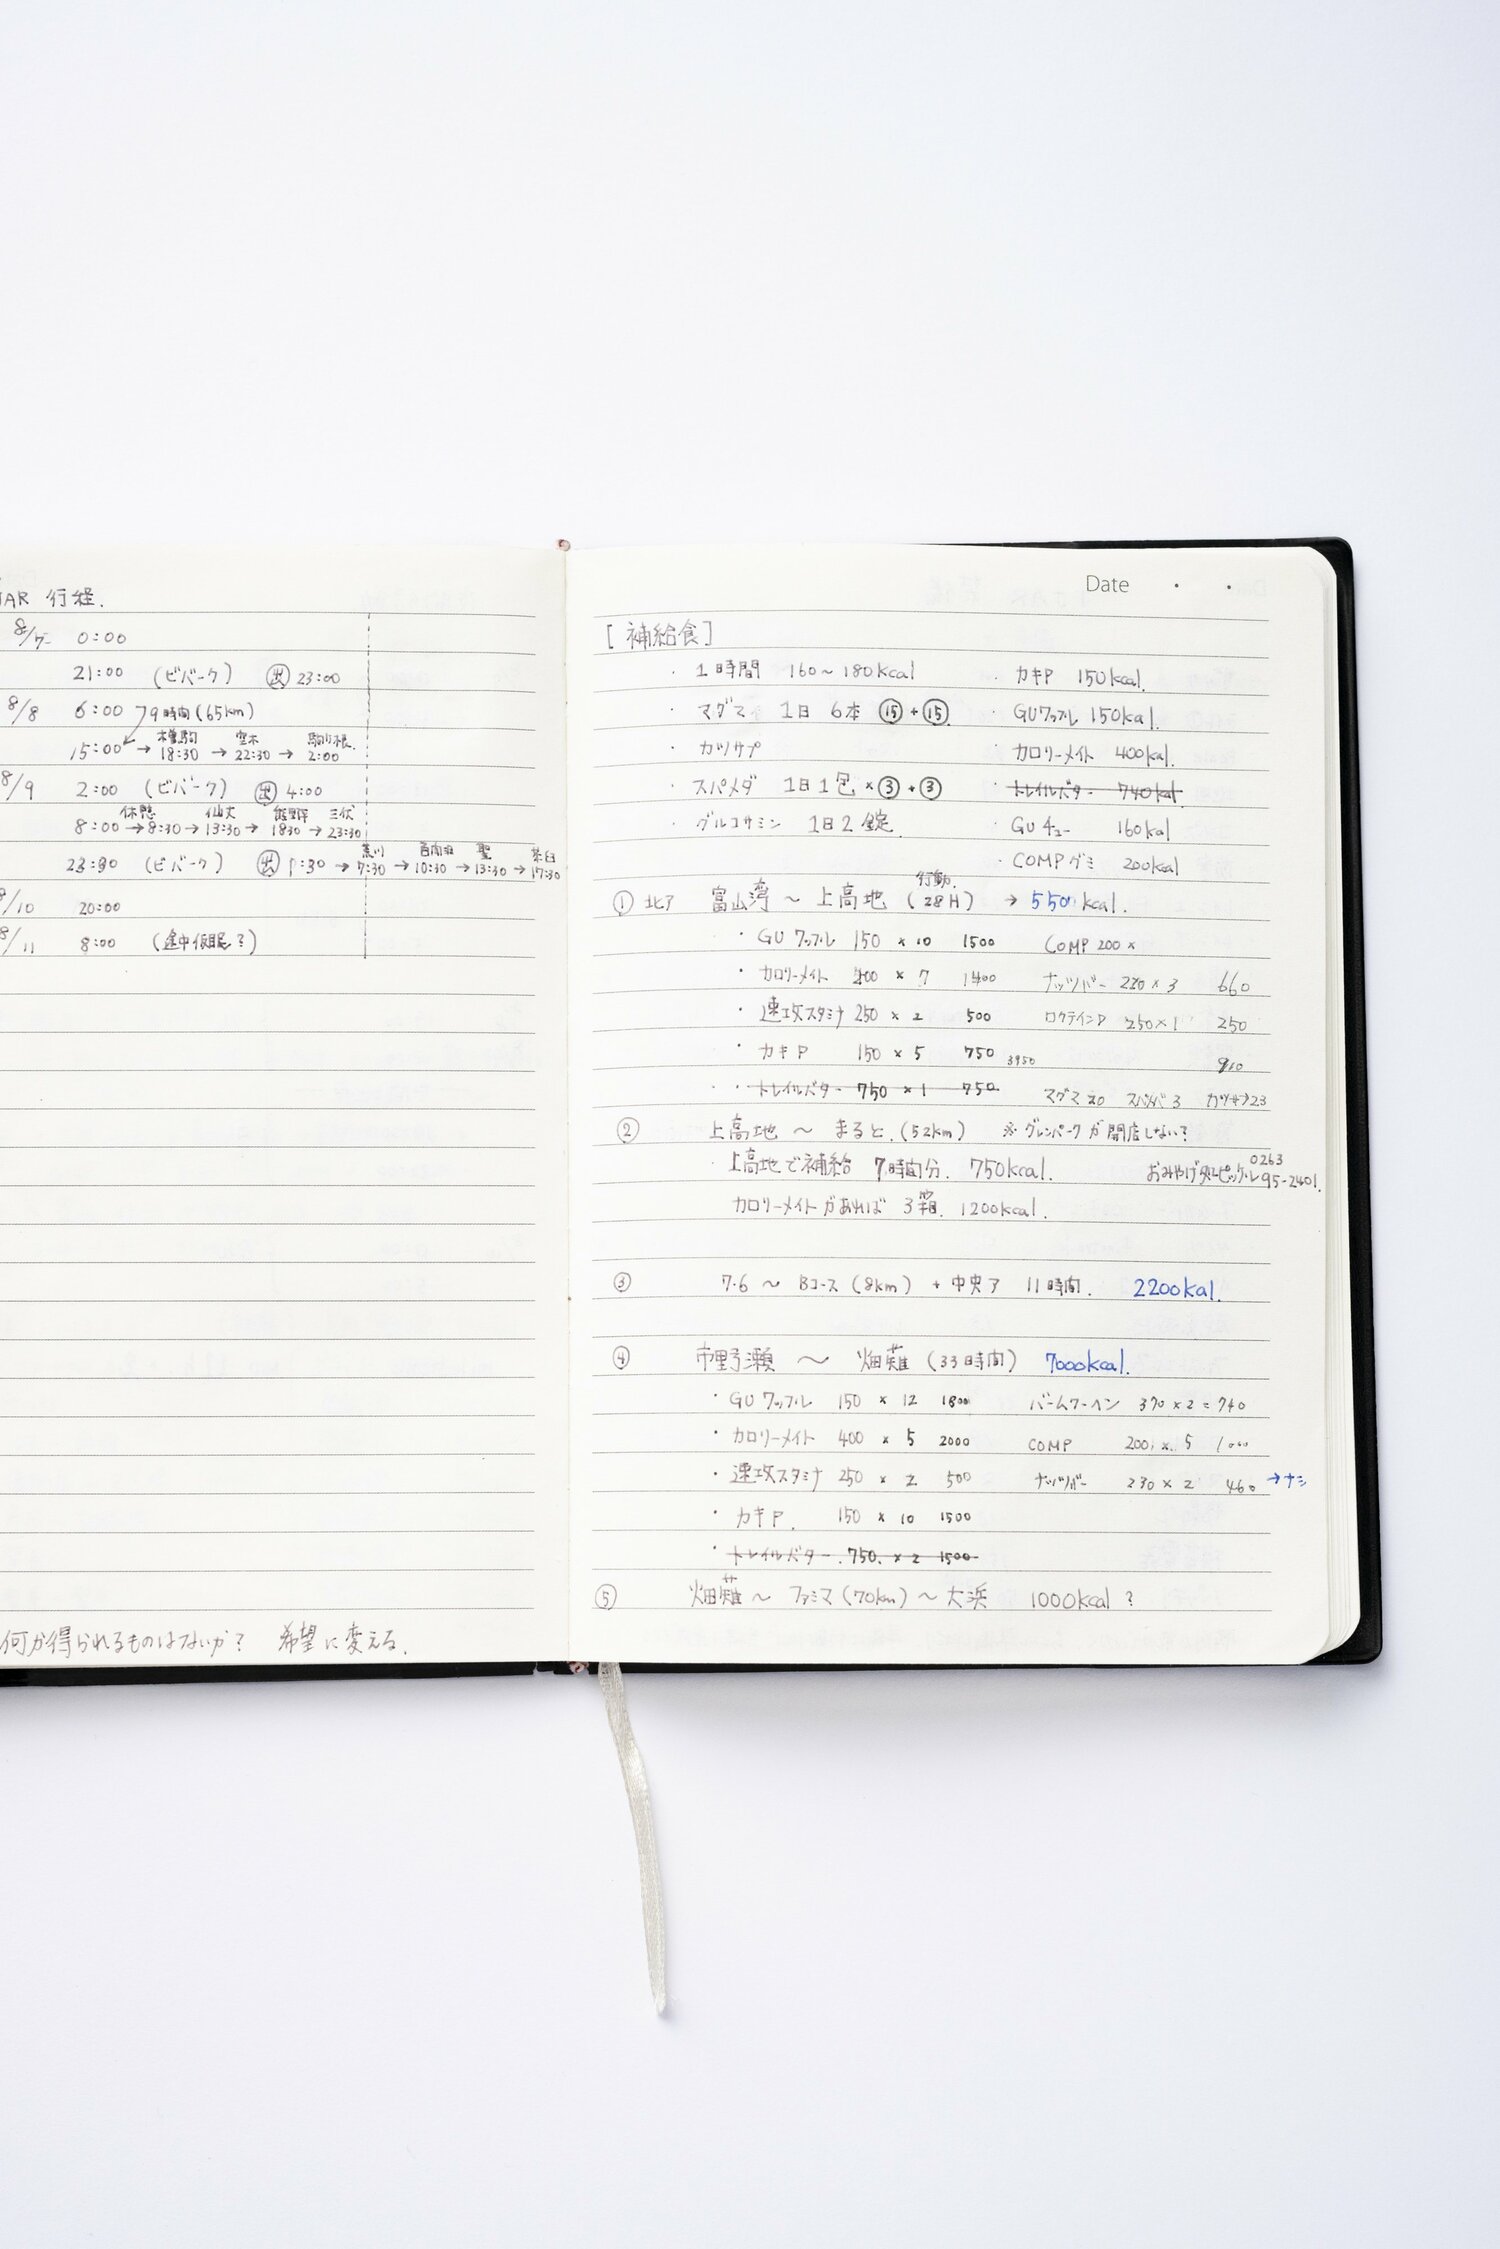 JAR 行程.
8/7 0:00
21:00 (ビバーク) 出 23:00
8/8 6:00 9時間(65km)
木曽駒 空木 駒ヶ根
15:00 → 18:30 → 22:30 → 2:00
8/9 2:00 (ビバーク) 出 4:00
休憩 仙丈 熊野 三伏
8:00 → 8:30 → 13:30 → 1830 → 23:30
荒川 百間洞 聖 茶臼
23:30 (ビバーク) 出 1:30 → 7:30 → 10:30 → 13:30 → 17:30
8/10 20:00
8/11 8:00 (途中仮眠?)
何か得られるものはないか? 希望に変える.
Date ・ ・
[補給食]
・1時間 160~180kcal ・カキP 150kcal.
・マグマ 1日 6本 ⑮+⑮ ・GUワッフル 150kal.
・カツサプ カロリーメイト 400kal.
・スパメダ 1日1包×③+③ ・トレイルバター 740kal
・グルコサミン 1日2錠 GUチュー 160kal
・COMPグミ 200kcal
① 北ア 富山湾 ~ 上高地 (行動. 28H) → 550 kcal.
・GU ワッフル 150 × 10 1500 COMP 200 ×
・カロリーメイト 400 × 7 1400 ナッツバー 220 × 3 660
・速攻スタミナ 250 × 2 500 ロクテインP 250×1 250
・カキP 150 × 5 750 3950 910
・トレイルバター 750 × 1 750 マグマ 20 スパメダ 3 カツサプ23
② 上高地 ~ まると.(52km) ※グレンパークが開店しない?
・上高地で補給 7時間分. 750kcal. おみやげ処ピッケル 0263 95-2401.
カロリーメイトがあれば 3箱. 1200kcal.
③ 7.6 ~ Bコース (8km) + 中央ア 11時間. 2200kal.
④ 市野瀬 ~ 畑薙 (33時間) 7000kcal.
・GU ワッフル 150 × 12 1800 バームクーヘン 370 × 2 = 740
・カロリーメイト 400 × 5 2000 COMP 200 × 5 1000
・速攻スタミナ 250 × 2 500 ナッツバー 230 × 2 460 →ナシ
・カキP. 150 × 10 1500
・トレイルバター. 750. × 2 1500
⑤ 畑薙 ~ ファミマ (70km) ~ 大浜 1000kcal ?